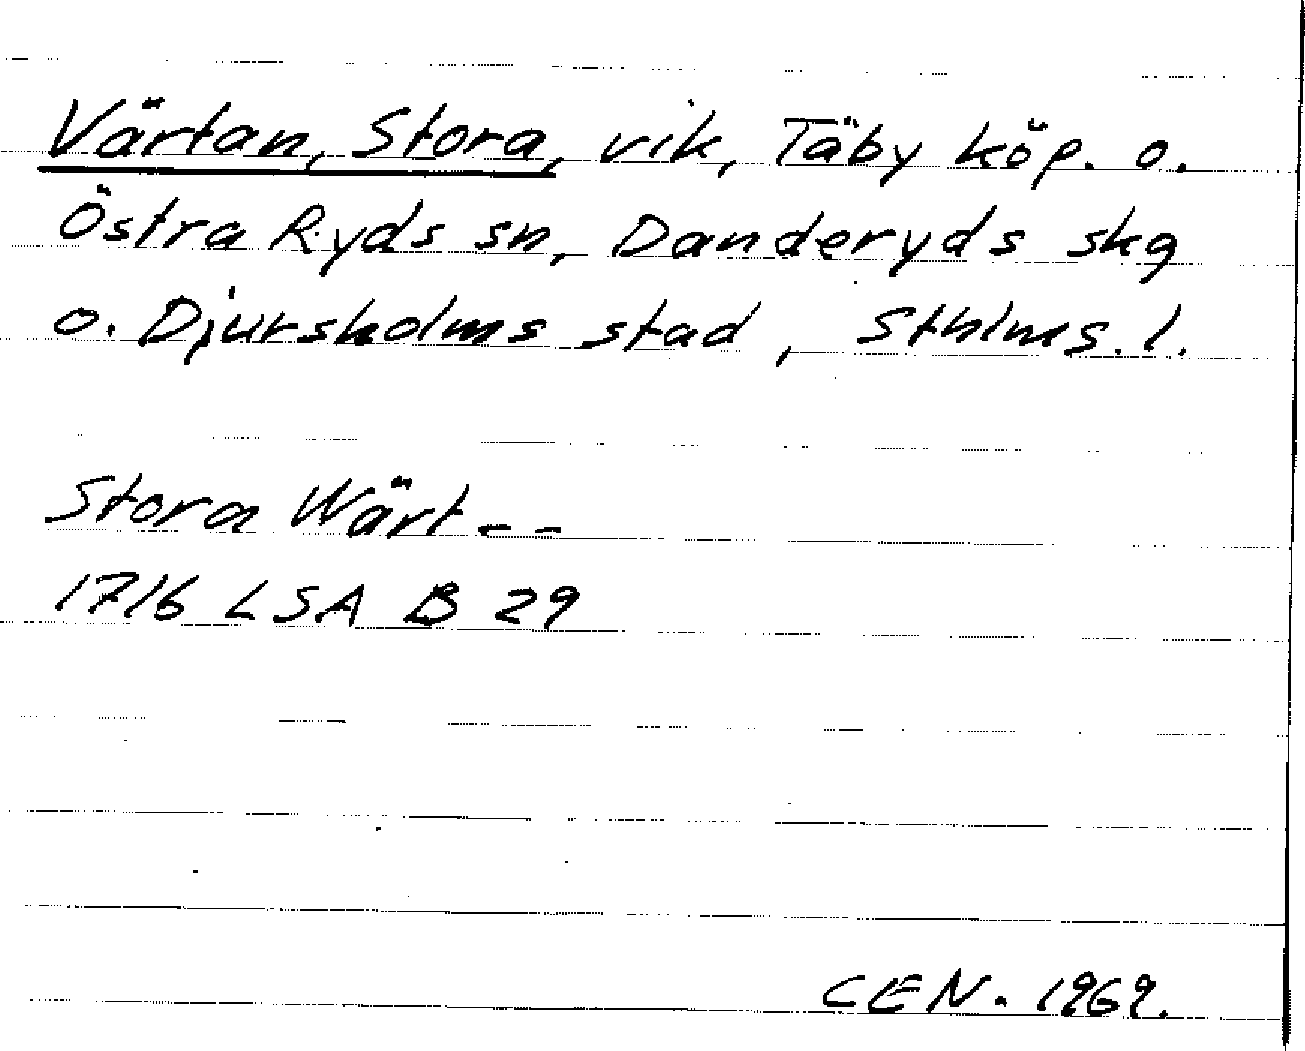 Värtan, Stora, vik, Täby köp. o.
Östra Ryds sn, Danderyds skg
o. Djursholms stad, Sthlms. l.
Stora Wärt--
1716 LSA B 29
CEN. 1969.